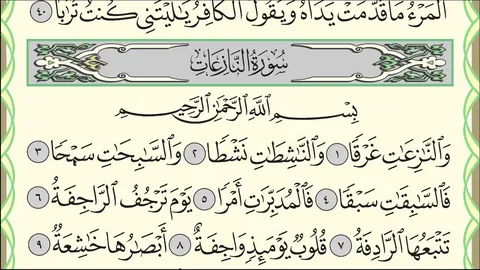 ٱلْمَرْءُ مَا قَدَّمَتْ يَدَاهُ وَيَقُولُ ٱلْكَافِرُ يَٰلَيْتَنِي كُنتُ تُرَٰبَۢا ٤٠
سُورَةُ النَّازِعَاتِ
بِسْمِ ٱللَّهِ ٱلرَّحْمَٰنِ ٱلرَّحِيمِ
وَٱلنَّٰزِعَٰتِ غَرْقٗا ١ وَٱلنَّٰشِطَٰتِ نَشْطٗا ٢ وَٱلسَّٰبِحَٰتِ سَبْحٗا ٣
فَٱلسَّٰبِقَٰتِ سَبْقٗا ٤ فَٱلْمُدَبِّرَٰتِ أَمْرٗا ٥ يَوْمَ تَرْجُفُ ٱلرَّاجِفَةُ ٦
تَتْبَعُهَا ٱلرَّادِفَةُ ٧ قُلُوبٞ يَوْمَئِذٖ وَاجِفَةٌ ٨ أَبْصَٰرُهَا خَٰشِعَةٞ ٩